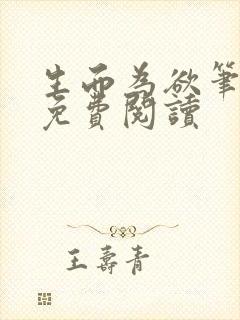 生而為欲筆
免費閱讀
王壽青